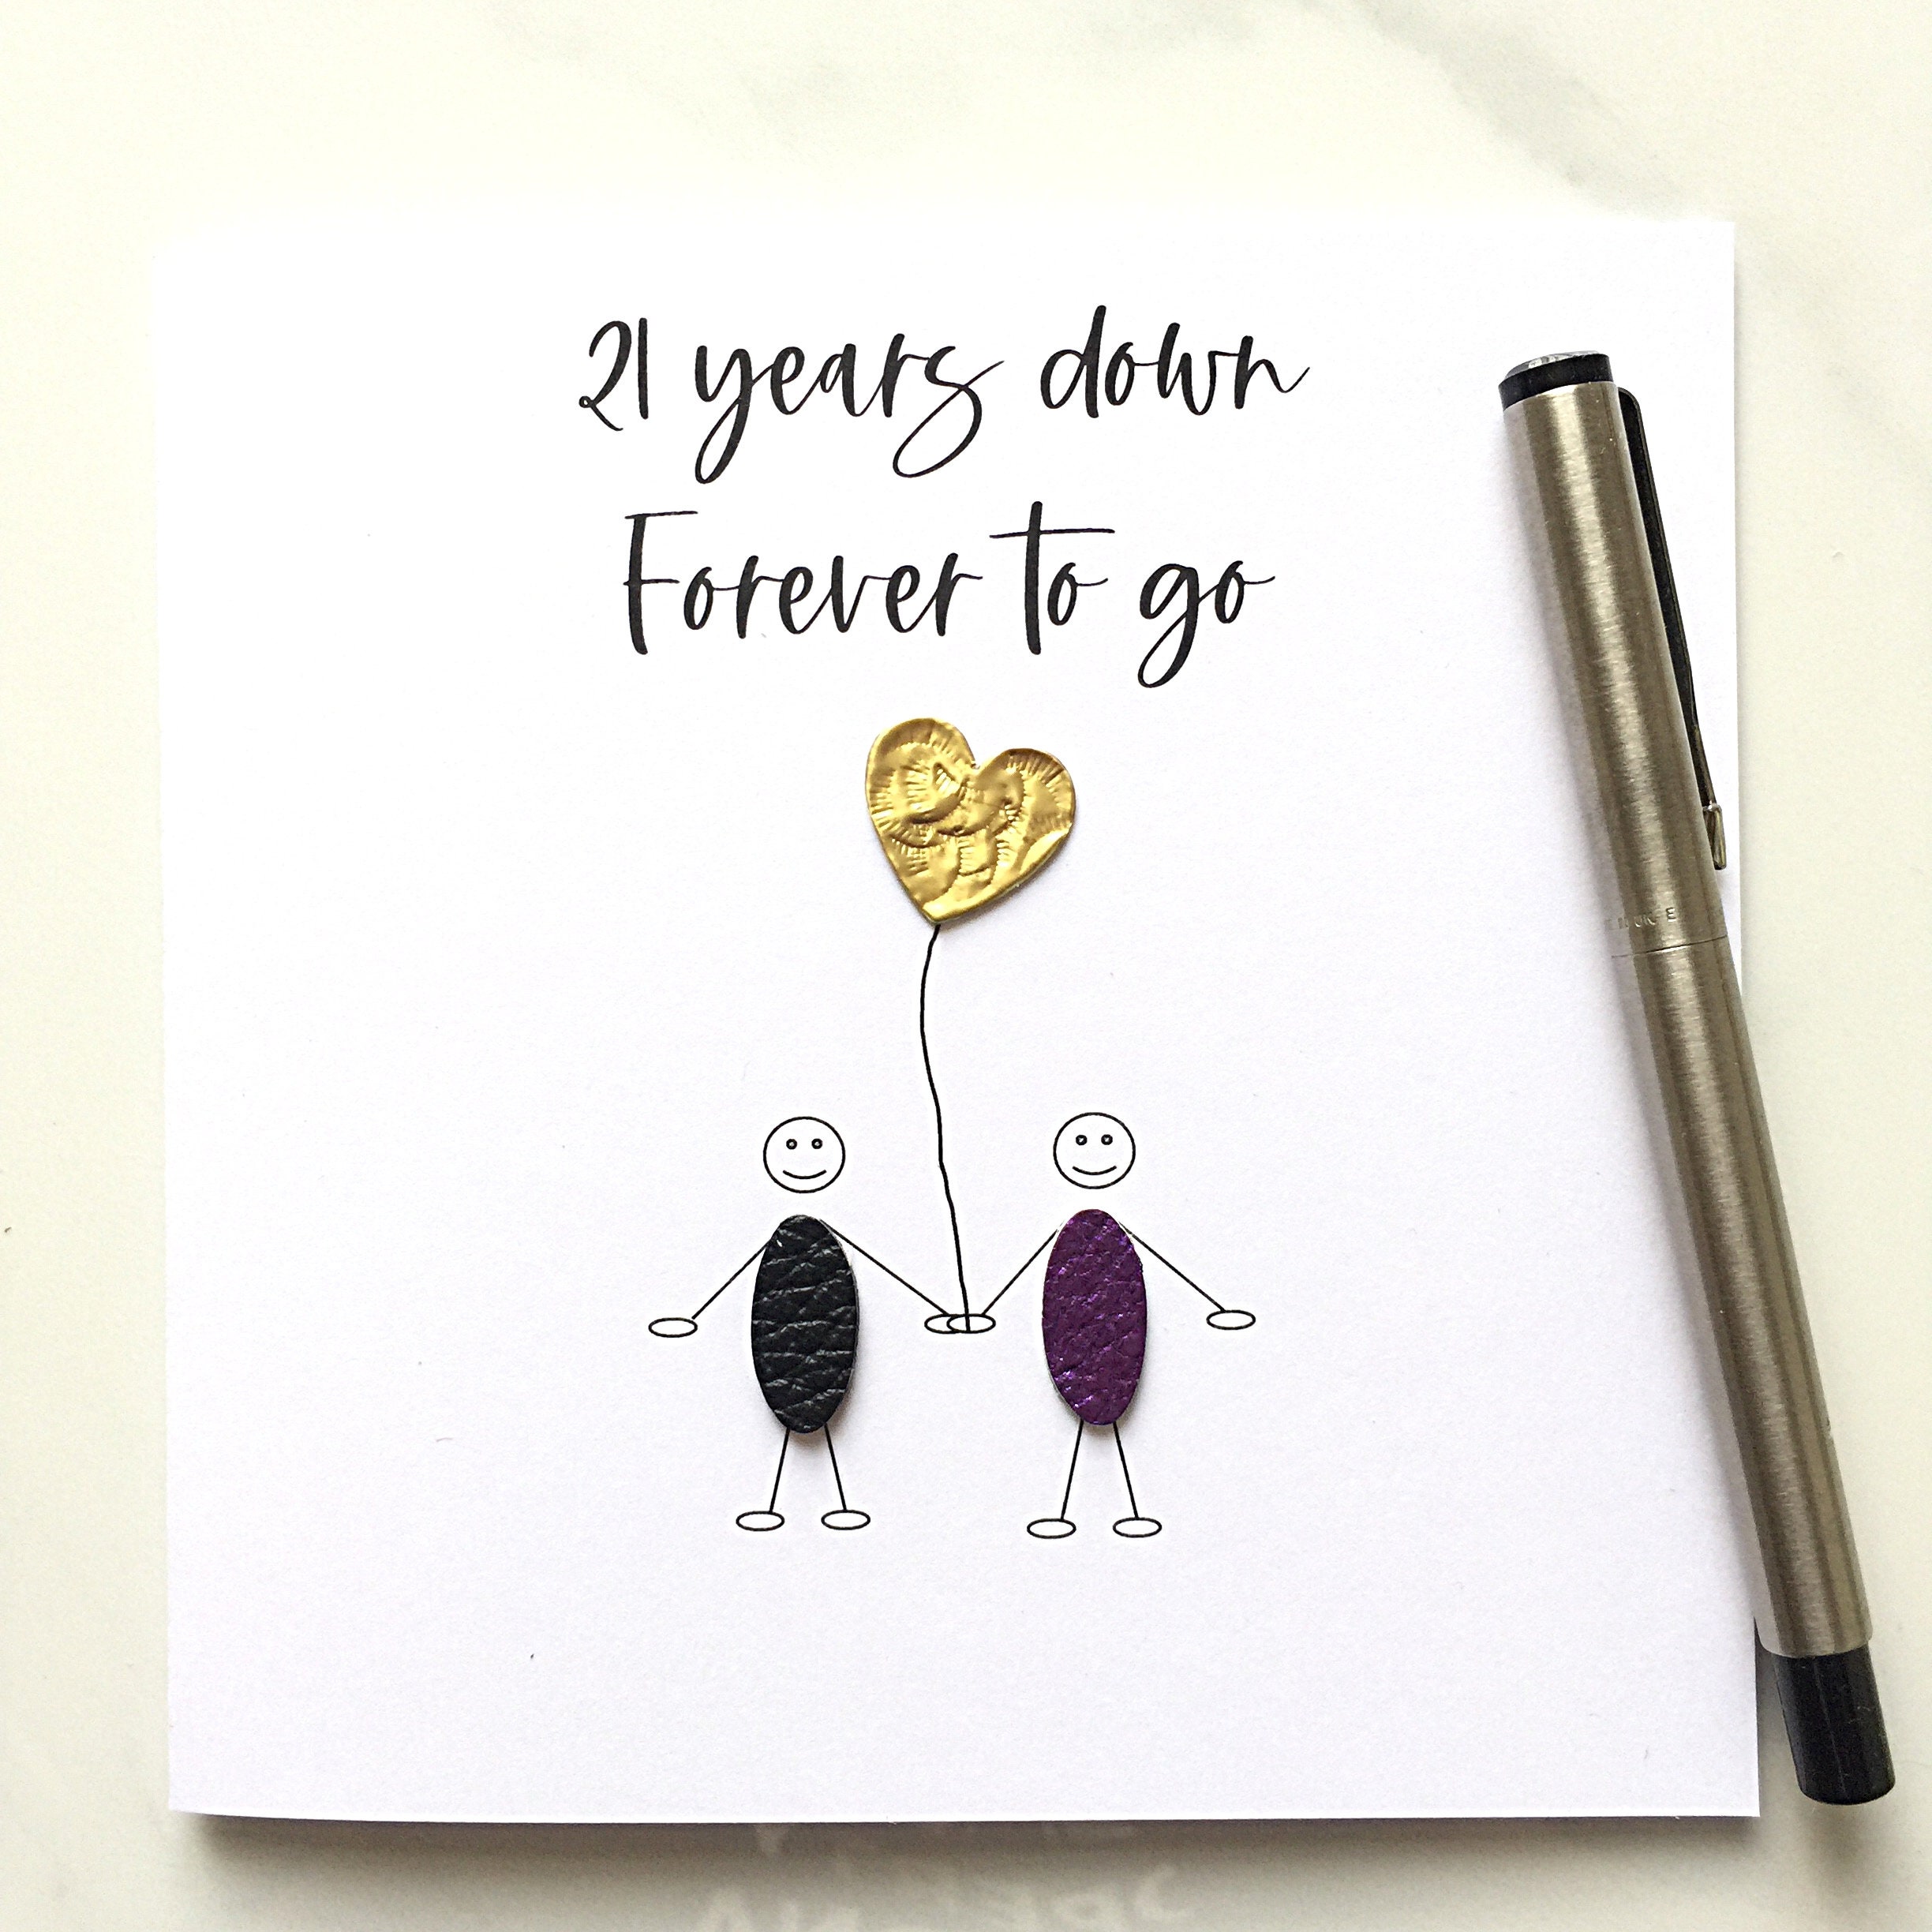 21 years down
Forever to go